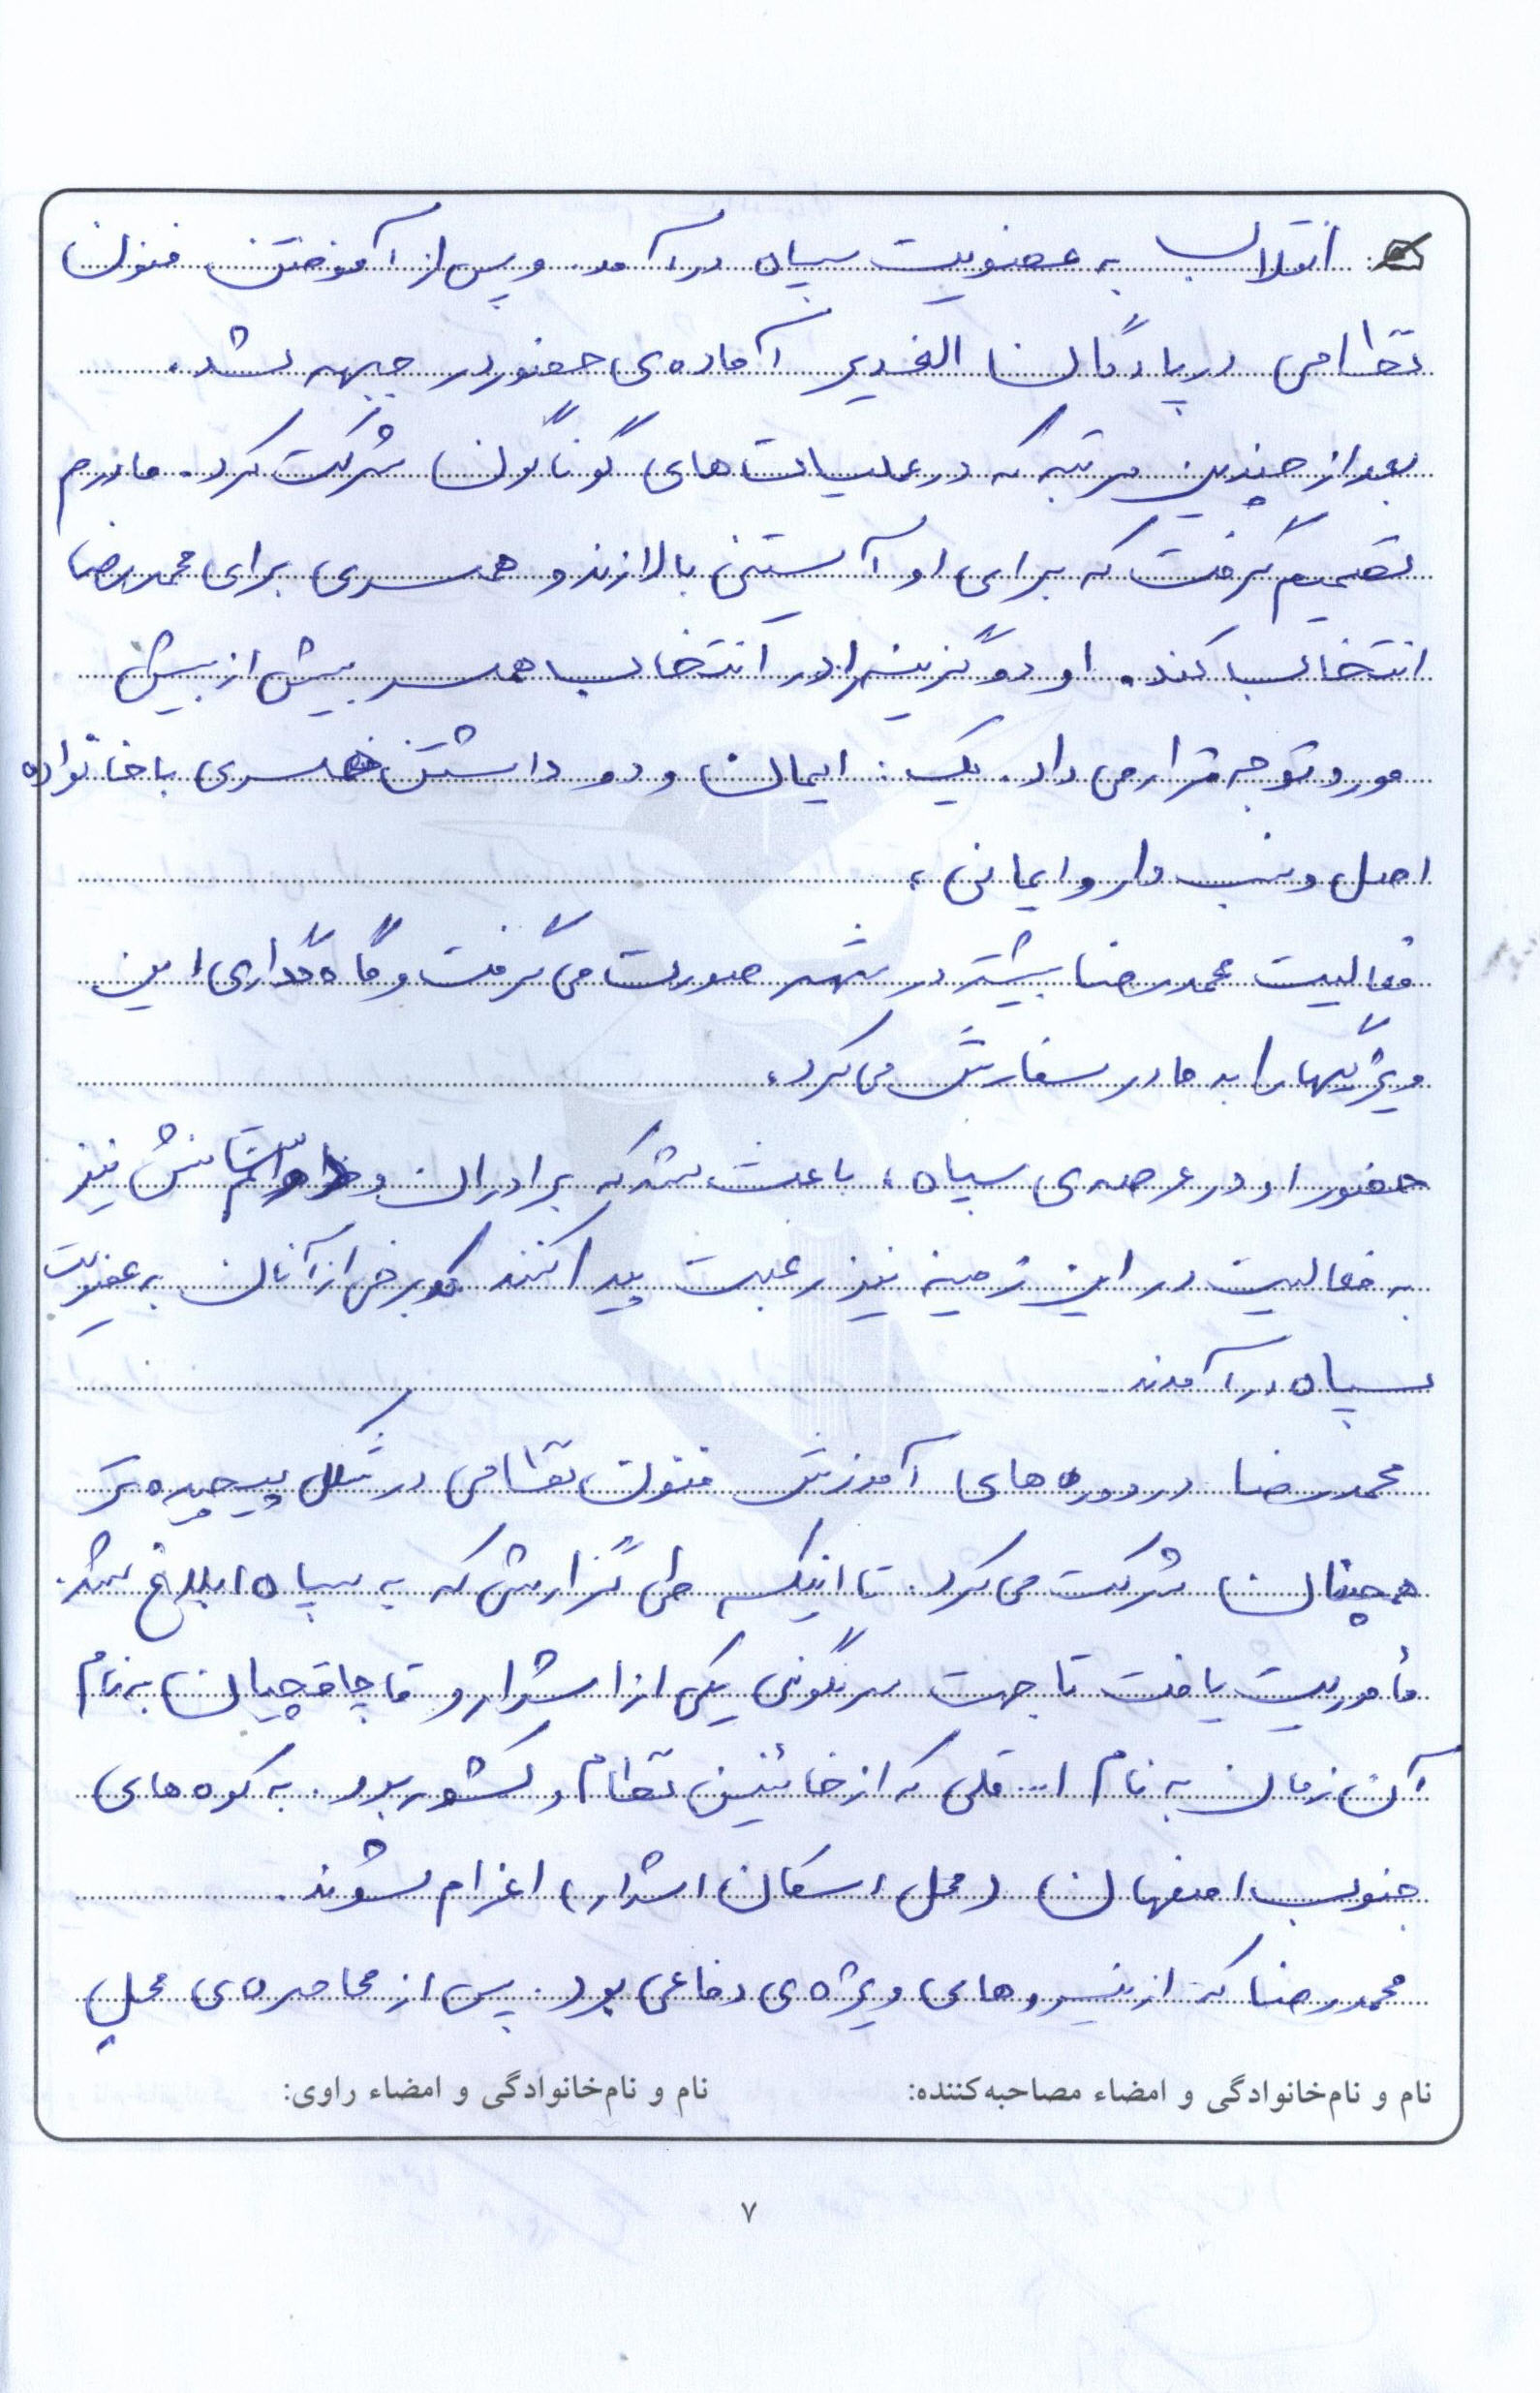 انقلاب به عضویت سپاه درآمد. و پس از آموختن فنون
نظامی در پادگان الغدیر آماده‌ی حضور در جبهه شد.
بعد از چندین مرتبه که در عملیات های گوناگون شرکت کرد. مادرم
تصمیم گرفت که برای او آستینی بالا زند و همسری برای محمدرضا
انتخاب کند. او دو گزینه را در انتخاب همسر بیش از پیش
مورد توجه قرار می داد. یک: ایمان و دو داشتن همسری با خانواده
اصل و نسب دار و ایمانی،
فعالیت محمدرضا بیشتر در شهر صورت می گرفت و گاه گداری این
ویژگیها را به مادر سفارش می کرد.
حضور او در عرصه ی سپاه، باعث شد که برادران و نیز
به فعالیت در این زمینه نیز رغبت پیدا کنند که برخی از آنان به عضویت
سپاه درآمدند
محمدرضا در دوره های آموزش فنون نظامی در شکل پیچیده تر
همچنان شرکت می کرد. تا اینکه طی گزارشی که به سپاه ابلاغ شد.
مأموریت یافت تا جهت سرنگونی یکی از اشرار و قاچاقچیان به نام
آن زمان به نام ا... قلی که از خائنین نظام و کشور بود. به کوه های
جنوب اصفهان (محل اسکان اشرار) اعزام شوند.
محمدرضا که از نیروهای ویژه ی دفاعی بود. پس از محاصره ی محل
نام و نام‌خانوادگی و امضاء مصاحبه‌کننده: نام و نام‌خانوادگی و امضاء راوی:
۷